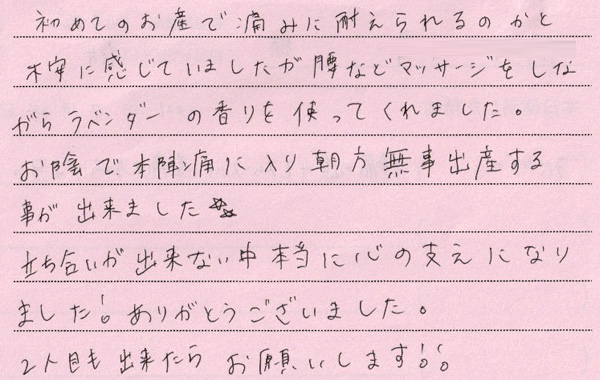 初めてのお産で痛みに耐えられるのかと
不安に感じていましたが腰などマッサージをしな
がらラベンダーの香りを使ってくれました。
お陰で本陣痛に入り朝方無事出産する
事が出来ました
立ち合いが出来ない中本当に心の支えになり
ました!ありがとうございました。
2人目も出来たらお願いします!!